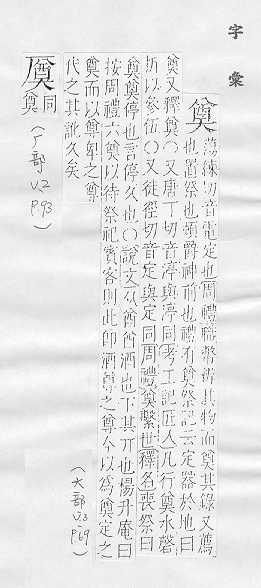 字彙
奠 蕩練切音電定也周禮職幣辨其物而奠其錄又薦
也置祭也頓爵神前也禮有奠祭記云定器於地曰
奠又釋奠○又唐丁切音渟與停同考工記匠人凡行奠水磬
折以參伍○又徒徑切音定與定同周禮奠繫世釋名喪祭曰
奠奠停也言停久也○說文从酋酋酒也下其丌也楊升庵曰
按周禮六奠以待祭祀賓客則此即酒尊之尊今以為奠定之
奠而以尊卑之尊
代之其訛久矣
(大部 V.3 P.69)
同奠
(厂部 V.2 P.93)